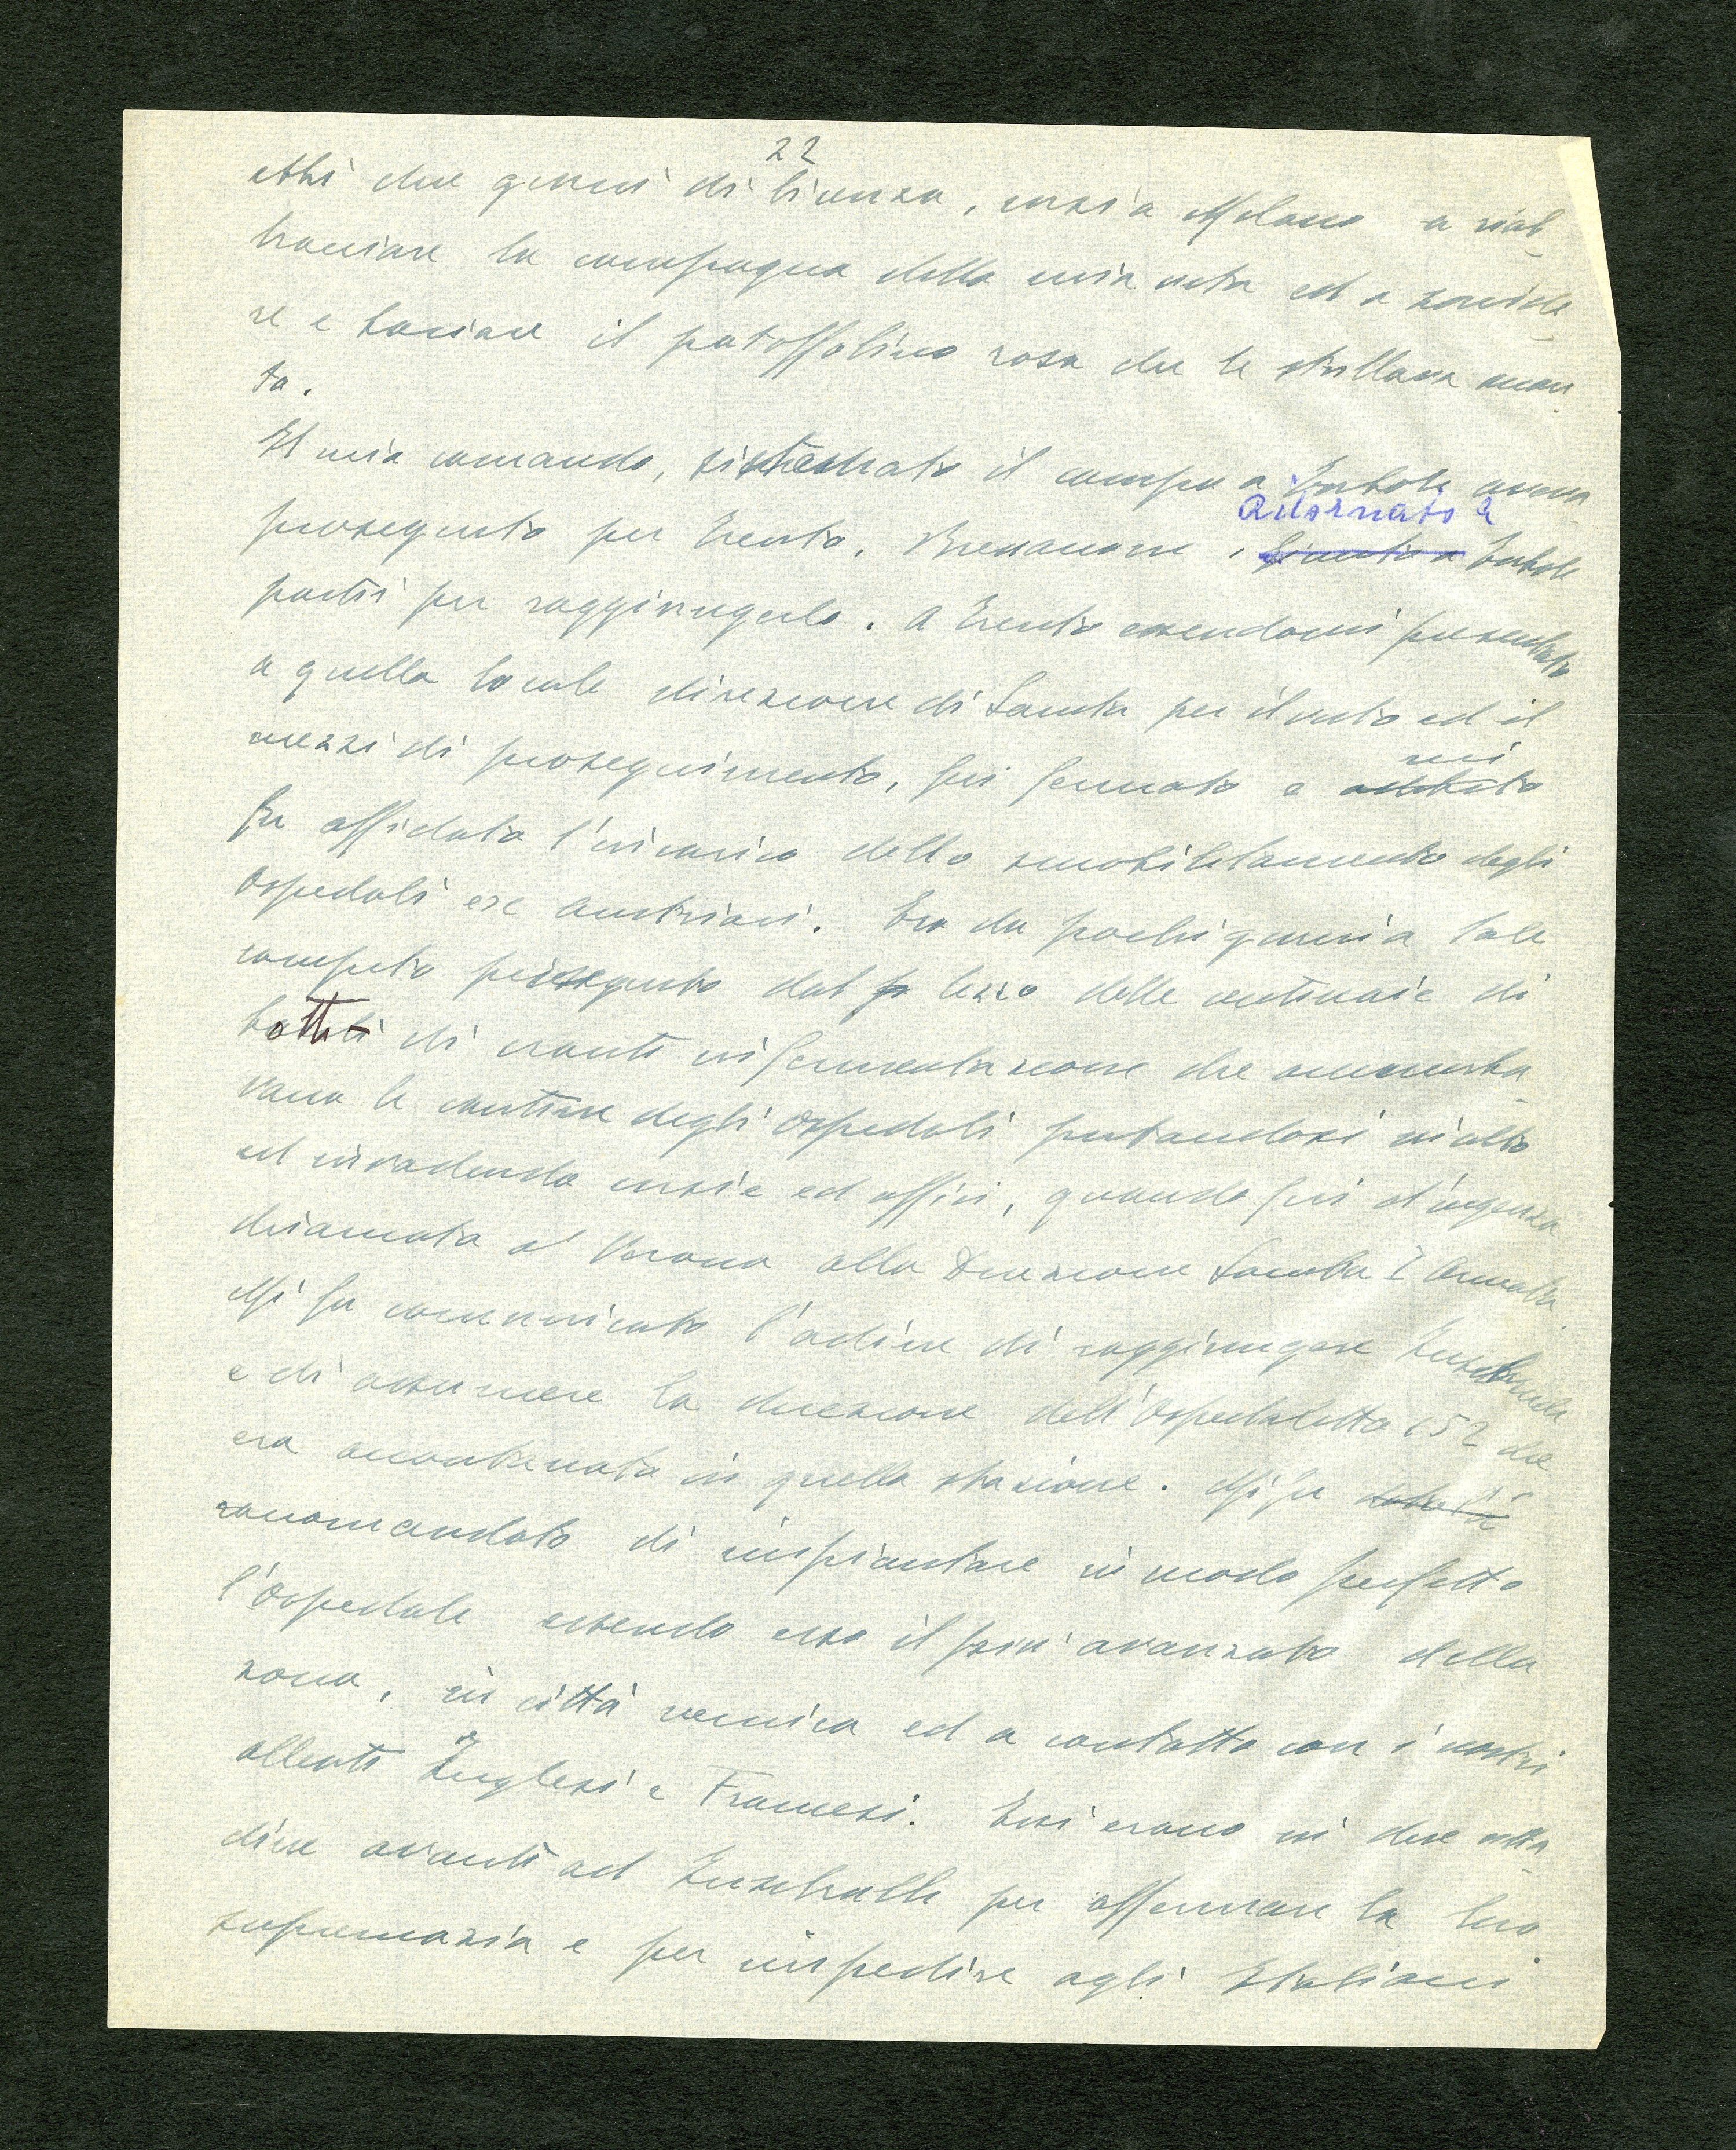 22
ebbi due giorni di licenza, corsi a Milano a riab
bracciare la compagna della mia vita ed a rivede
re e baciare il patoffolino rosa che le strillava accan
to.
Il mio comando, rintracciato il campo a Torbole aveva
proseguito per Trento, Bressanone. Ritornato a
giunto a Torbole
partii per raggiungerlo. A Trento essendomi presentato
a quella locale direzione di Sanità per il visto ed il
mezzi di proseguimento, fui fermato e mi
fu affidato l'incarico dello smobilitamento degli
Ospedali ex austriaci. Ero da pochi giorni a tale
compito perseguito dal lezzo delle centinaia di
botti di crauti in fermentazione che ammorba
vano le cantine degli Ospedali portandosi in alto
ed invadendo corsie ed uffici, quando fui d'urgenza
chiamato a Verona alla Direzione Sanità I Armata
Mi fu comunicato l'ordine di raggiungere Innsbruck
e di assumere la direzione dell'Ospedaletto 152 che
era accantonato in quella stazione. Mi fu
raccomandato di impiantare in modo perfetto
l'Ospedale essendo esso il più avanzato della
zona, in città nemica ed a contatto con i nostri
alleati Inglesi e Francesi. Essi erano in due citta
dine avanti ad Innsbruck per affermare la loro
supremazia e per impedire agli Italiani